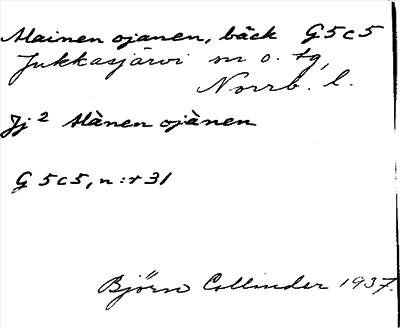 Alainen ojanen, bäck G5c5
Jukkasjärvi sn o. tg,
Norrb. l.
Jj² alànen ojànen
G5c5, n:r 31
Björn Collinder 1937.